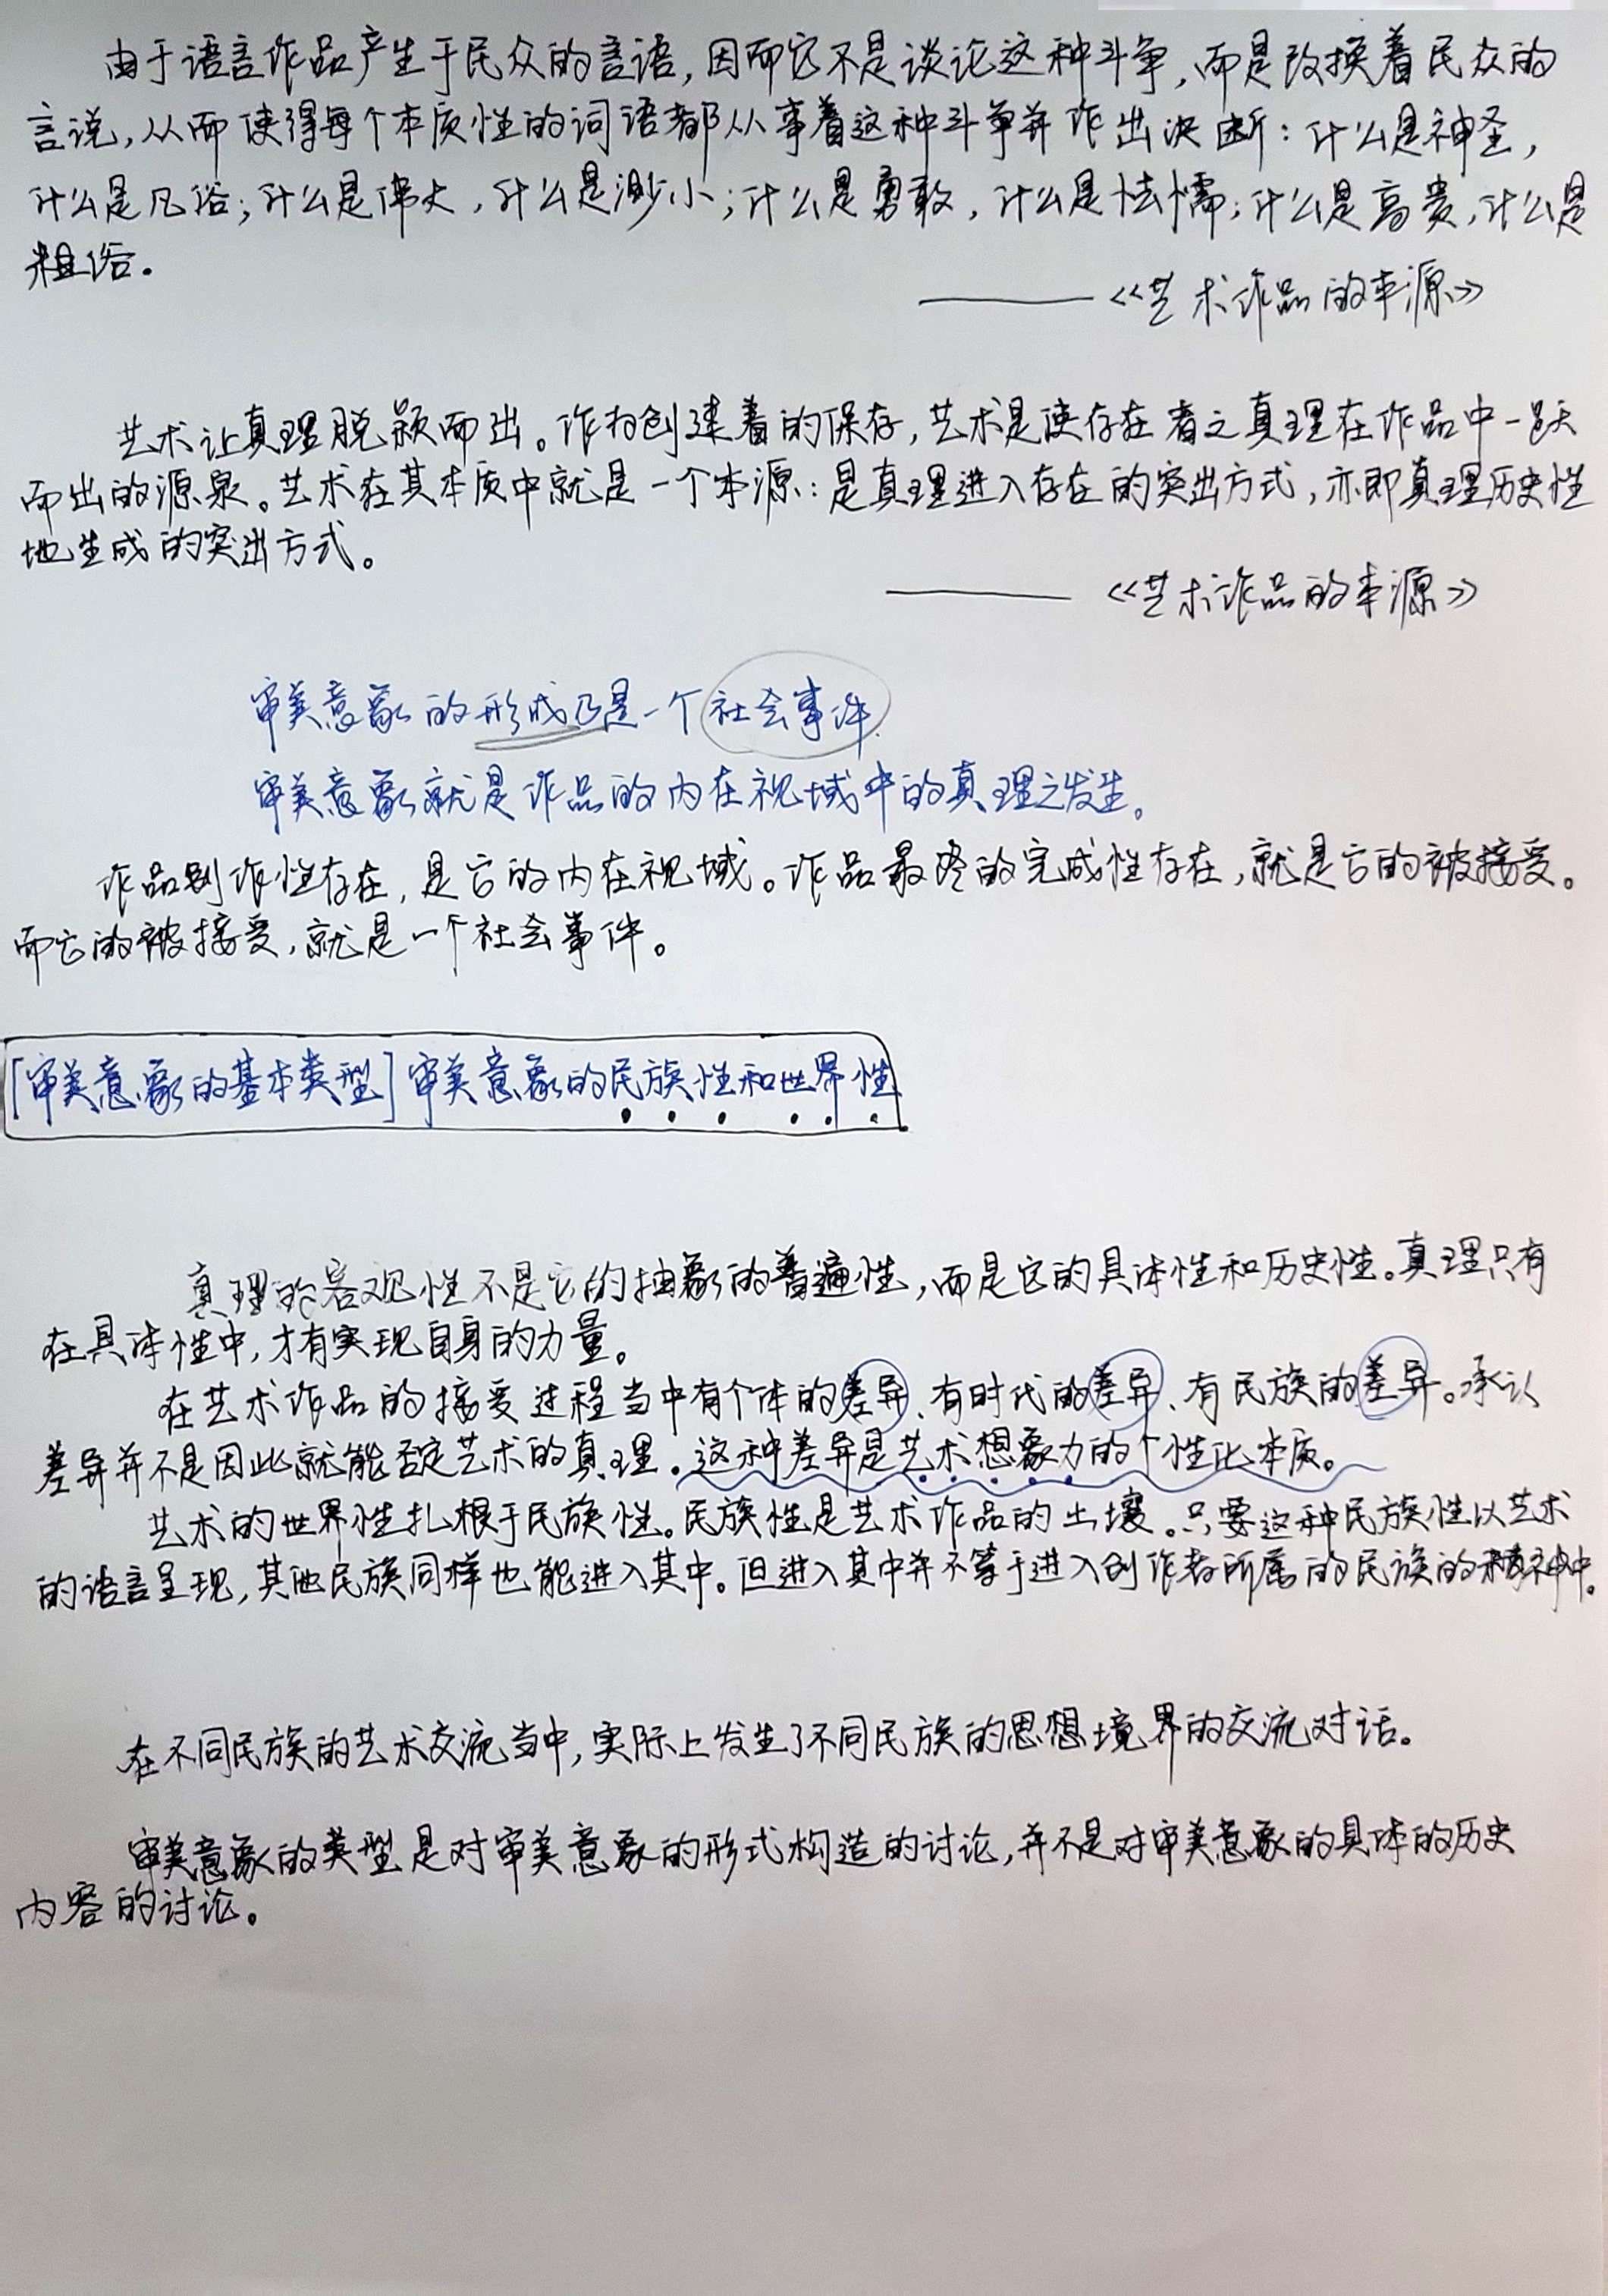 由于语言作品产生于民众的言语，因而它不是谈论这种斗争，而是改换着民众的
言说，从而使得每个本质性的词语都从事着这种斗争并作出决断：什么是神圣，
什么是凡俗；什么是伟大，什么是渺小；什么是勇敢，什么是怯懦；什么是高贵，什么是
粗俗。
——《艺术作品的本源》
艺术让真理脱颖而出。作为创建着的保存，艺术是使存在者之真理在作品中一跃
而出的源泉。艺术在其本质中就是一个本源：是真理进入存在的突出方式，亦即真理历史性
地生成的突出方式。
——《艺术作品的本源》
审美意象的形成乃是一个社会事件.
审美意象就是作品的内在视域中的真理之发生。
作品创作性存在，是它的内在视域。作品最终的完成性存在，就是它的被接受。
而它的被接受，就是一个社会事件。
[审美意象的基本类型]审美意象的民族性和世界性
真理的客观性不是它的抽象的普遍性，而是它的具体性和历史性。真理只有
在具体性中，才有实现自身的力量。
在艺术作品的接受过程当中有个体的差异、有时代的差异、有民族的差异。承认
差异并不是因此就能否定艺术的真理。这种差异是艺术想象力的个性化本质。
艺术的世界性扎根于民族性。民族性是艺术作品的土壤。只要这种民族性以艺术
的语言呈现，其他民族同样也能进入其中。但进入其中并不等于进入创作者所属的民族的精神中。
在不同民族的艺术交流当中，实际上发生了不同民族的思想境界的交流对话。
审美意象的类型是对审美意象的形式构造的讨论，并不是对审美意象的具体的历史
内容的讨论。